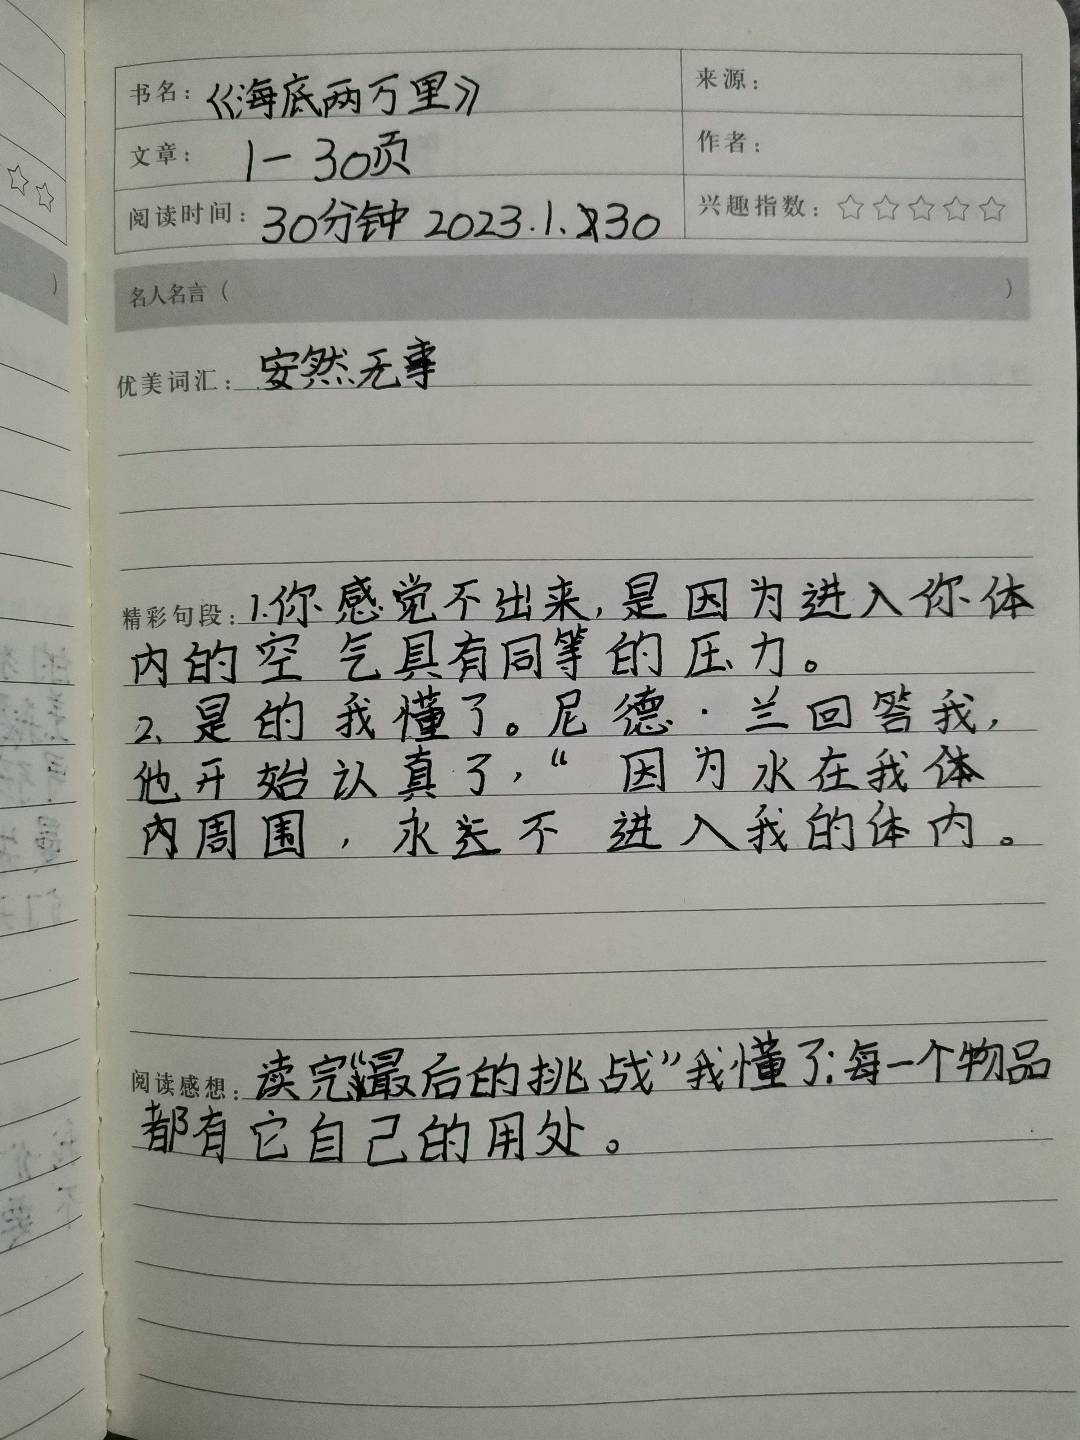 书名：《海底两万里》
来源：
文章：1-30页
作者：
阅读时间：30分钟 2023.1.30
兴趣指数：☆☆☆☆☆
名人名言（ ）
优美词汇：安然无事
精彩句段：1.你感觉不出来，是因为进入你体
内的空气具有同等的压力。
2、是的我懂了。尼德·兰回答我，
他开始认真了，“因为水在我体
内周围，水并不进入我的体内。
阅读感想：读完“最后的挑战”我懂了：每一个物品
都有它自己的用处。